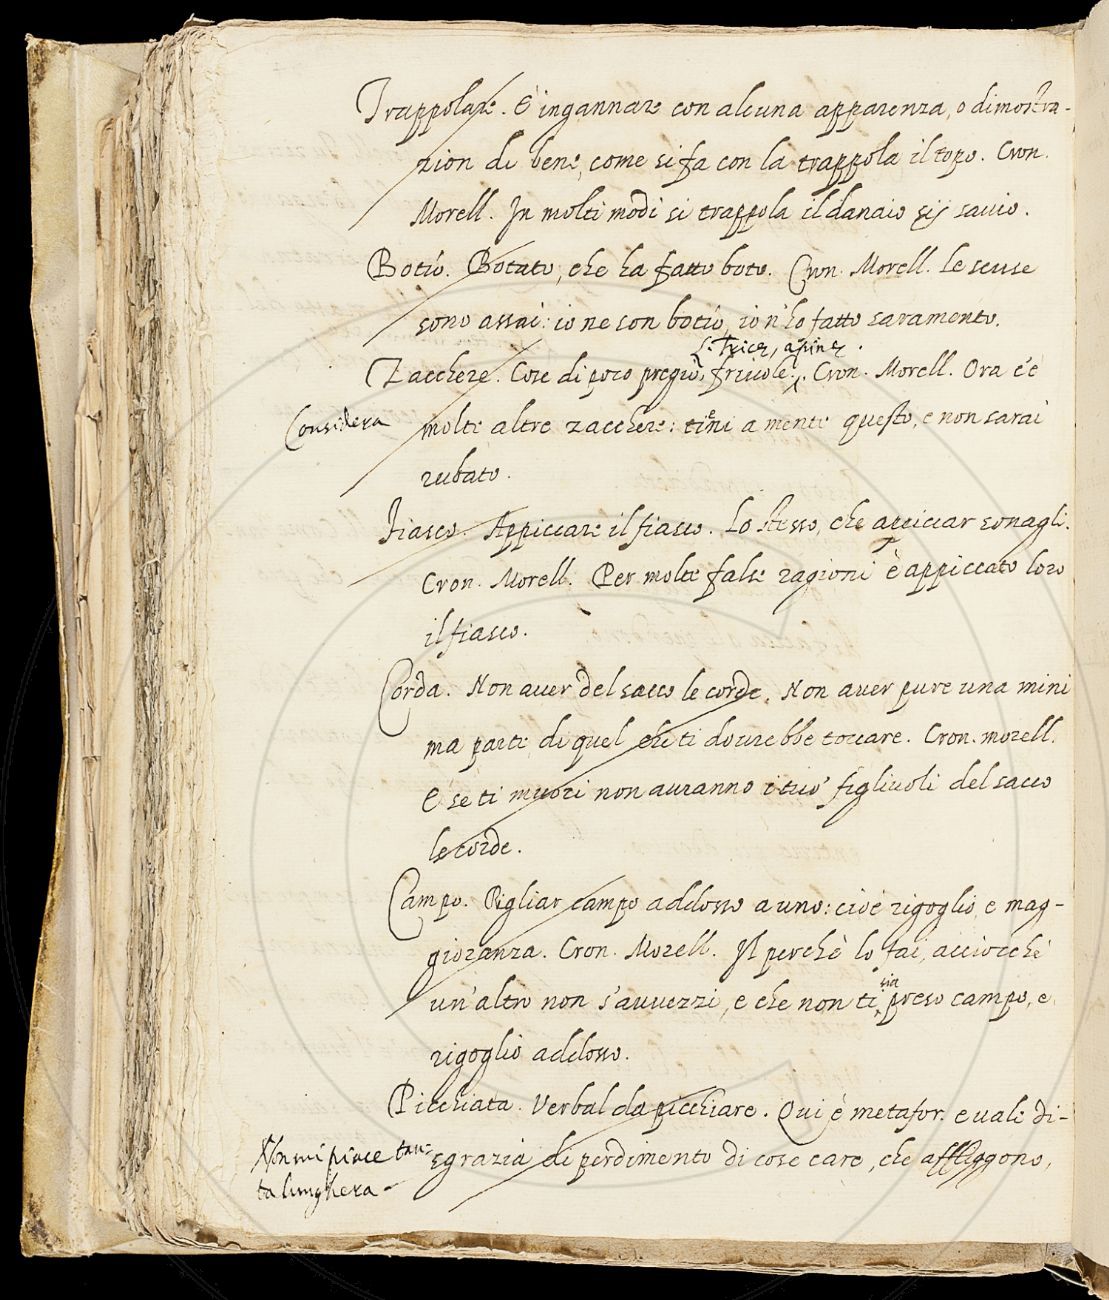 Trappolare. È ingannare con alcuna apparenza, o dimostra-
zion di bene, come si fa con la trappola il topo. Cron.
Morell. In molti modi si trappola il danaio savio.
Botio. Botato, che ha fatto boto. Cron. Morell. le scuse
sono assai: io ne son botio, io n'ho fatto saramento.
Zacchere. Cose di poco pregio, frivole. Cron. Morell. Ora c'è
s. Tricæ, apinæ.
Considera
molte altre zacchere: tieni a mente questo, e non sarai
rubato.
Fiasco. Appiccare il fiasco. Lo stesso, che appiccar sonagli.
Cron. Morell. Per molte false ragioni è appiccato loro
il fiasco.
Corda. Non aver del sacco le corde. Non aver pure una mini
ma parte di quel che ti dovrebbe toccare. Cron. morell.
E se ti muori non avranno i tuo' figliuoli del sacco
le corde.
Campo. Pigliar campo addosso a uno: cioè rigoglio, e mag-
gioranza. Cron. Morell. Il perchè lo fai, acciocchè
un'altro non s'avvezzi, e che non ti sia preso campo, e
rigoglio addosso.
Picchiata. Verbal da picchiare. Qui è metafor. e vale di-
Non mi piace tan-
ta lunghera
sgrazia di perdimento di cose care, che affliggono,